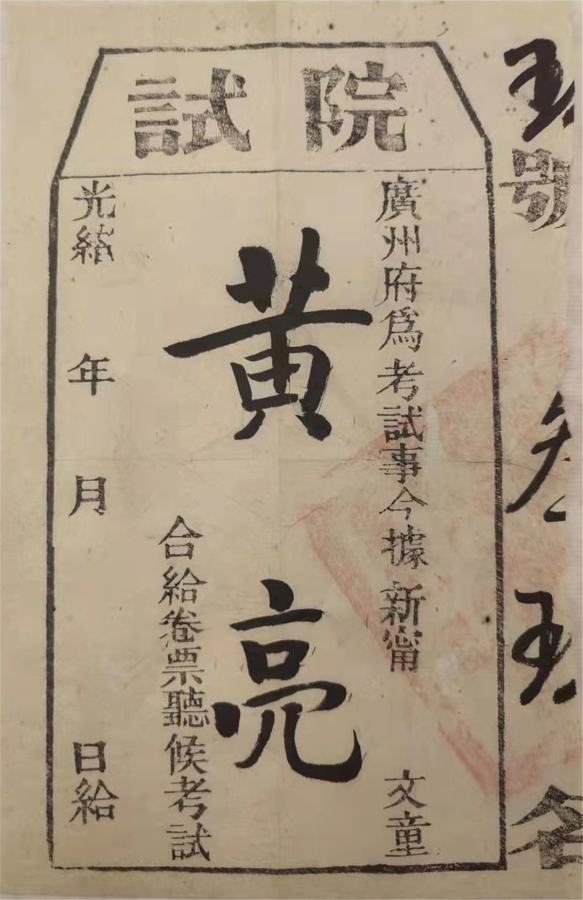 院試
號
名
廣州府爲考試事今據新甯 文童
黄亮
合給卷票聽候考試
光緒 年 月 日給